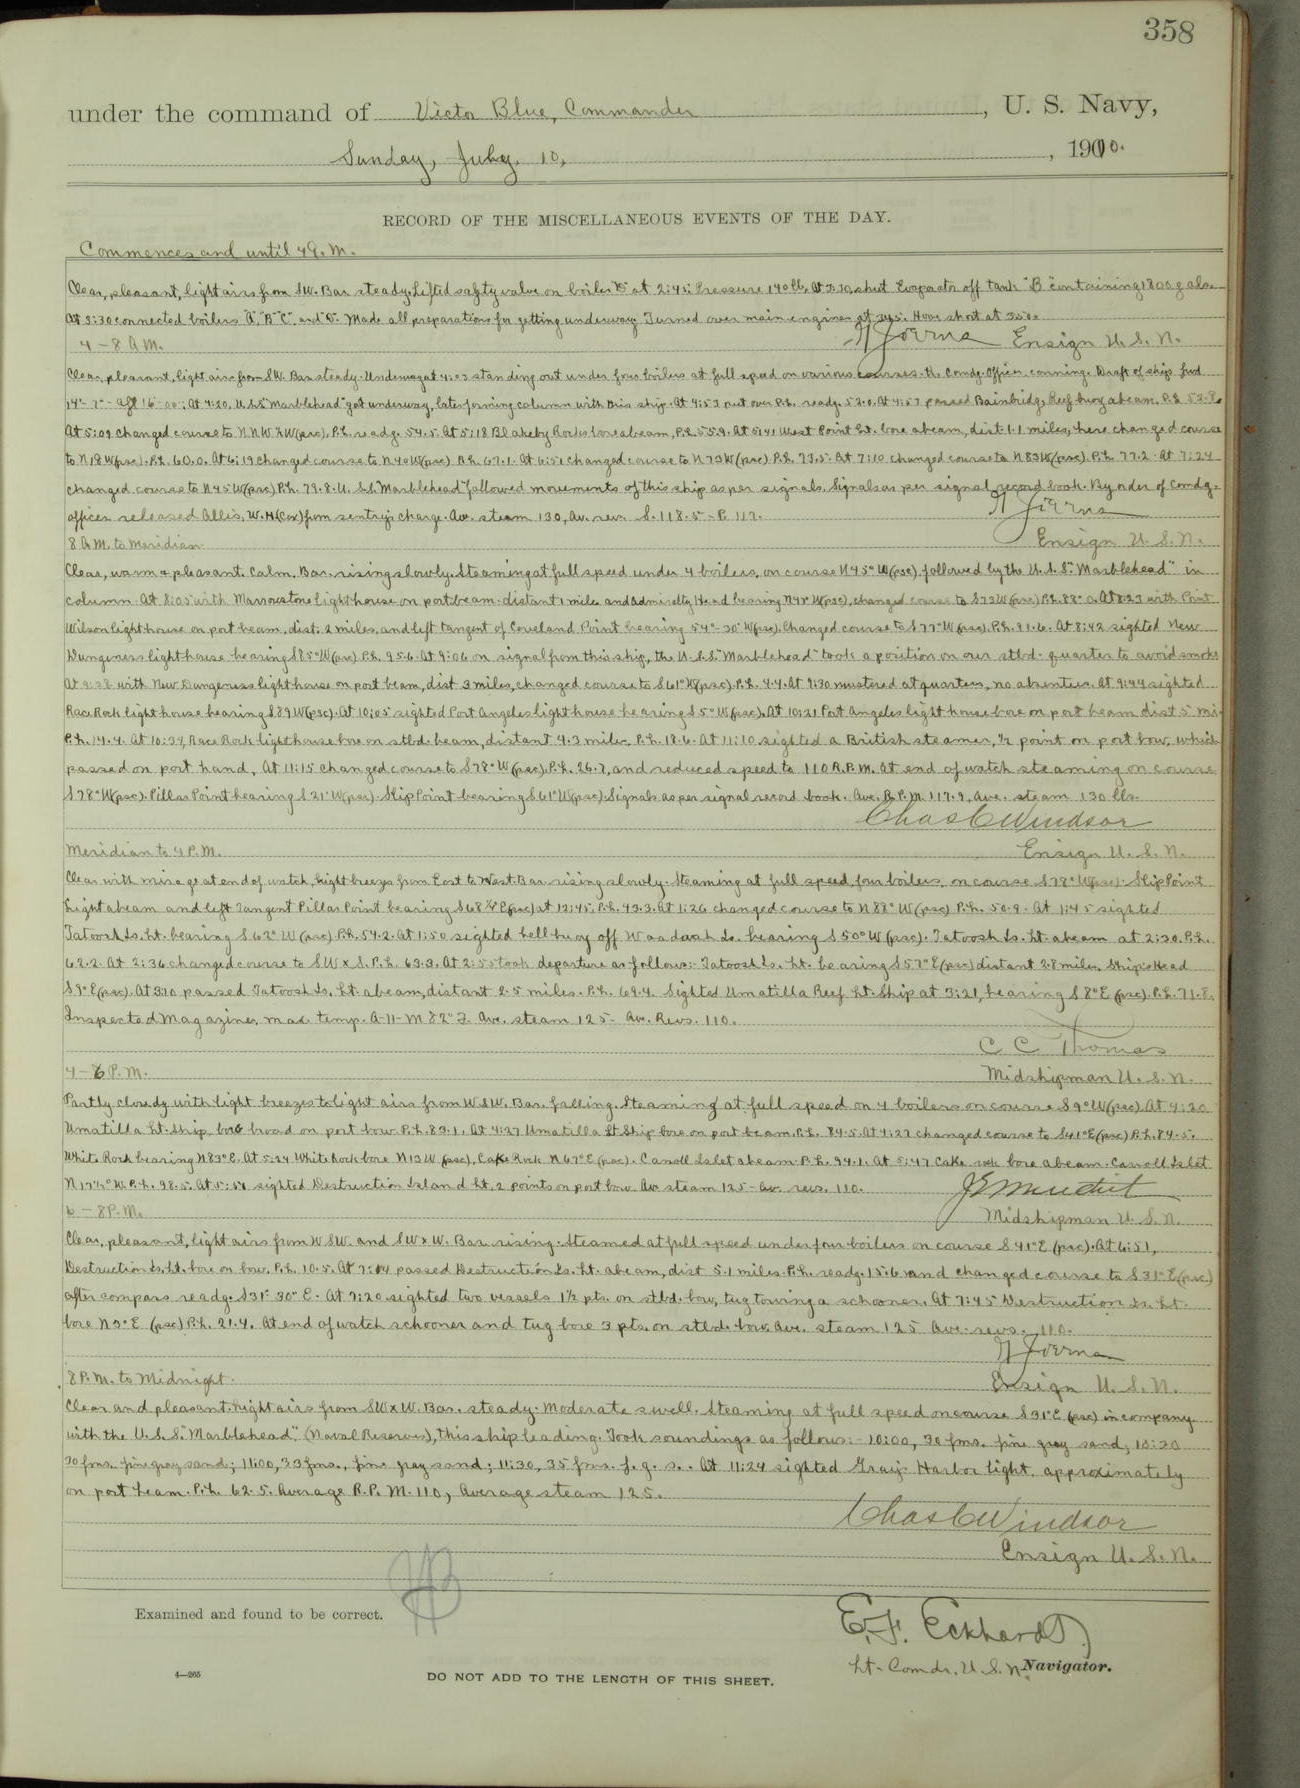 358
under the command of Victor Blue, Commander, U. S. Navy,
Sunday, July, 10, 1910.
RECORD OF THE MISCELLANEOUS EVENTS OF THE DAY.
Commences and until 4 A. M.
Clear, pleasant, light airs from SW. Bar. steady. Lifted safety valve on boiler at 2:45: Pressure 140 lb. At shut Evaporator off tank "B" containing 1800 gals.
At 3:30 connected boilers "A", "B" "C", and "D". Made all preparations for getting underway. Turned over main engines at 345. Hove short at 350.
4 - 8 A M. Ensign U. S. N.
Clear, pleasant, light airs from SW. Bar. steady. Underway at 4:03 standing out under four boilers at full speed on various courses. Comdg. Officer conning. Draft of ship fwd
14'-7" - aft 16'-00". At 4:20, U.S.S. "Marblehead" got underway, later forming column with this ship. At 4:53 put over P.L. readg. 52.0. At 4:57 passed Bainbridge Reef buoy abeam. P.L. 52.8.
At 5:09 changed course to NNW½W (psc), P.L. readg. 54.5. At 5:18 Blakeley Rocks bore abeam, P.L. 55.9. At 5:41 West Point Lt. bore abeam, dist. 1.1 miles, here changed course
to N18W(psc). P.L. 60.0. At 6:19 changed course to N40W(psc) P.L. 67.1. At 6:51 changed course to N73W(psc) P.L. 73.5. At 7:10 changed course to N83W(psc) P.L. 77.2. At 7:24
changed course to N45W(psc) P.L. 79.8. U.S.S. "Marblehead" followed movements of this ship as per signals. Signals as per signal record book. By order of Comdg.
officer released Allis, W.H. (Cox) from sentry's charge. Av. steam 130, Av. rev. S. 118.5 - P. 117.
8 A.M. to Meridian. Ensign U. S. N.
Clear, warm & pleasant. Calm. Bar. rising slowly. Steaming at full speed under 4 boilers, on course N45°W(psc), followed by the U.S.S. "Marblehead" in
column. At 8:05 with Marrowstone lighthouse on port beam. distant 1 mile and Admiralty Head bearing W(psc), changed course to S73W(psc) P.L. 82.0. At 8:23 with Point
Wilson lighthouse on port beam, dist. 2 miles, and left tangent of Coveland Point bearing 54°-30'W(psc). Changed course to S77°W(psc). P.L. 91.6. At 8:42 sighted New
Dungeness lighthouse bearing S85°W(psc) P.L. 95.6. At 9:06 on signal from this ship, the U.S.S. "Marblehead" took a position on our stbd. quarter to avoid smoke
At 9:28 with New Dungeness lighthouse on port beam, dist 3 miles, changed course to S61°W(psc). P.L. 4.4. At 9:30 mustered at quarters, no absentees. At 9:44 sighted
Race Rock lighthouse bearing S89W(psc). At 10:05 sighted Port Angeles lighthouse bearing S5°W(psc). At 10:21 Port Angeles lighthouse bore on port beam dist 5 mi.
P.L. 14.4. At 10:39, Race Rock lighthouse bore on stbd. beam, distant 4.3 miles, P.L. 18.6. At 11:10 sighted a British steamer, ½ point on port bow, which
passed on port hand. At 11:15 changed course to S78°W(psc). P.L. 26.7, and reduced speed to 110 R.P.M. At end of watch steaming on course
S78°W(psc). Pillar Point bearing S21°W(psc). Slip Point bearing S61°W(psc). Signals as per signal record book. Ave. R.P.M. 117.9, Ave. steam 130 lbs.
Chas C Windsor
Meridian to 4 P.M. Ensign U. S. N.
Clear with mirage at end of watch, light breezes from East to West. Bar. rising slowly. Steaming at full speed, four boilers, on course S78°W(psc). Slip Point
Light abeam and left Tangent Pillar Point bearing S68¼E(psc) at 12:45, P.L. 43.3. At 1:26 changed course to N88°W(psc) P.L. 50.9. At 1:45 sighted
Tatoosh Is. Lt. bearing S62°W(psc) P.L. 54.2. At 1:50 sighted bell buoy off Waaddah Is. bearing S50°W(psc). Tatoosh Is. Lt. abeam at 2:30. P.L.
62.2. At 2:36 changed course to SW x S. P.L. 63.3. At 2:55 took departure as follows:- Tatoosh Is. Lt. bearing S57°E(psc) distant 2.8 miles. Ship's Head
S9°E(psc). At 310 passed Tatoosh Is. Lt. abeam, distant 2.5 miles. P.L. 69.4. Sighted Umatilla Reef Lt. Ship at 3:21, bearing S8°E(psc). P.L. 71.8.
Inspected Magazines, max. temp. A-11-M 82° F. Ave. steam 125 - Av. Revs. 110.
C C Thomas
4 - 6 P.M. Midshipman U. S. N.
Partly cloudy with light breezes to light airs from WSW. Bar. falling. Steaming at full speed on 4 boilers on course S9°W(psc). At 4:20
Umatilla Lt. Ship. bore broad on port bow. P.L. 83.1. At 4:27 Umatilla Lt Ship bore on port beam. P.L. 84.5. At 4:27 changed course to S41°E(psc) P.L. 84.5.
White Rock bearing N83°E. At 5:24 White Rock bore N13W(psc), Cake Rock N67°E(psc). Carroll Islet abeam P.L. 94.1. At 5:47 Cake rock bore abeam. Carroll Islet
N17½°W. P.L. 98.5. At 5:54 sighted Destruction Island Lt. 2 points on port bow. Av. steam 125 - av. revs. 110.
6 - 8 P.M. Midshipman U. S. N.
Clear, pleasant, light airs from WSW. and SW x W. Bar. rising. Steamed at full speed under four boilers on course S41°E (psc). At 6:51,
Destruction Is. Lt. bore on bow. P.L. 10.5. At 7:14 passed Destruction Is. Lt. abeam, dist 5.1 miles. P.L. readg. 15.6 and changed course to S31°E(psc)
after compass readg. S31° 30' E. At 7:20 sighted two vessels 1½ pts. on stbd. bow, tug towing a schooner. At 7:45 Destruction Is. Lt.
bore N3°E (psc) P.L. 21.4. At end of watch schooner and tug bore 3 pts. on stbd. bow. Ave. steam 125 Ave. revs. 110.
8 P.M. to Midnight. Ensign U. S. N.
Clear and pleasant. Light airs from SW x W. Bar. steady. Moderate swell. Steaming at full speed on course S31°E (psc) in company
with the U.S.S. "Marblehead", (Naval Reserves), this ship leading. Took soundings as follows:- 10:00, 30 fms. fine gray sand; 10:30
30 fms. fine gray sand; 11:00, 33 fms., fine gray sand; 11:30, 35 fms. f. g. s. . At 11:24 sighted Grays Harbor light, approximately
on port beam. P.L. 62.5. Average R.P.M. 110, Average steam 125.
Chas C Windsor
Ensign U. S. N.
Examined and found to be correct.
E. F. Eckhardt
Lt-Comdr. U.S.N. Navigator.
4—265
DO NOT ADD TO THE LENGTH OF THIS SHEET.